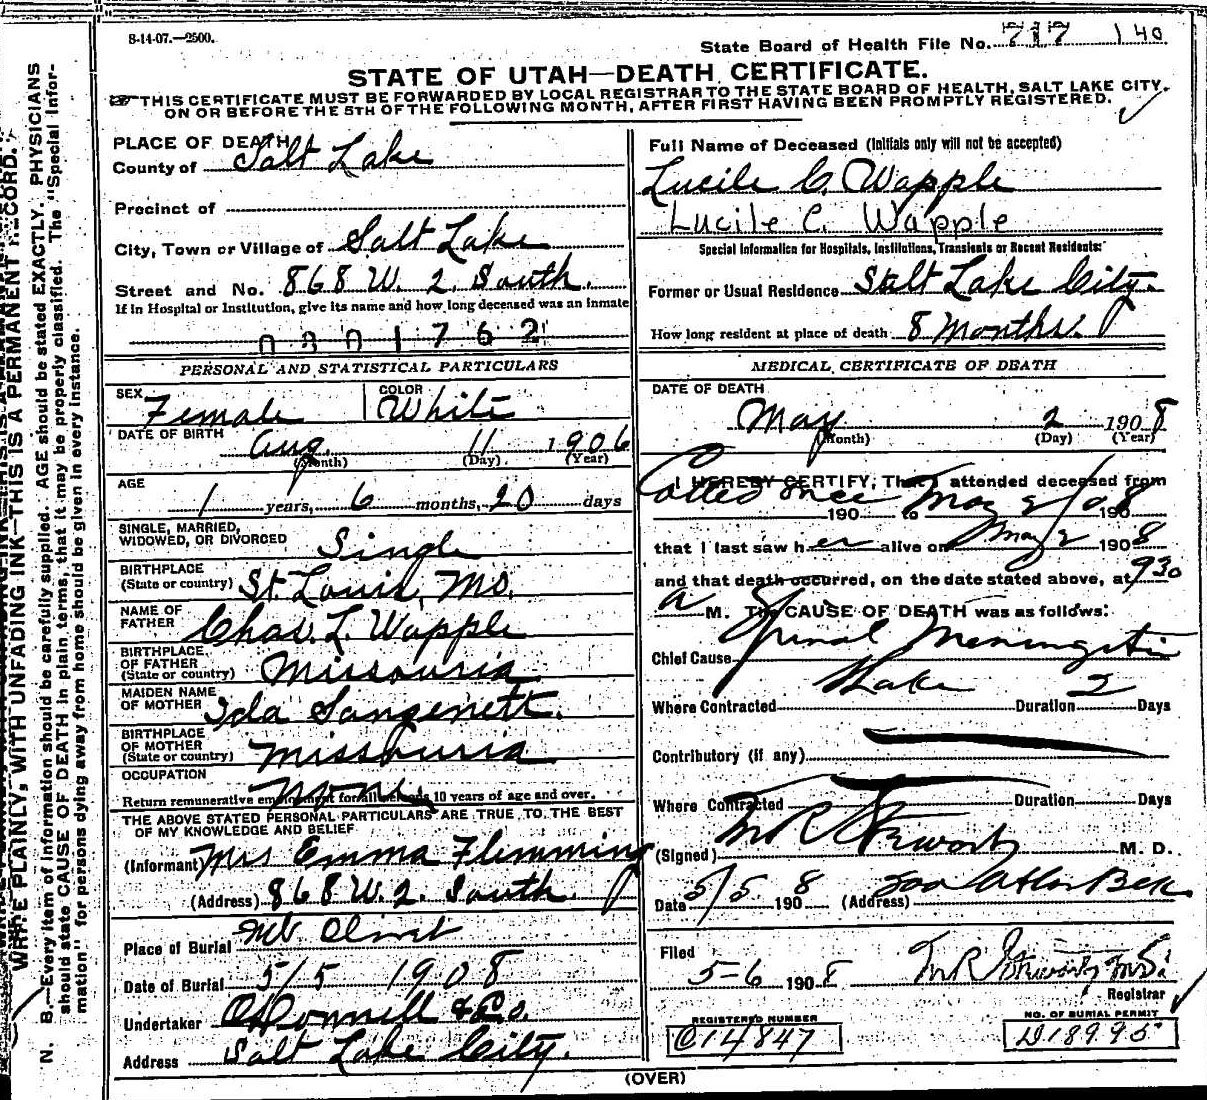 8-14-07.—2500.
State Board of Health File No. 717 140
STATE OF UTAH—DEATH CERTIFICATE.
THIS CERTIFICATE MUST BE FORWARDED BY LOCAL REGISTRAR TO THE STATE BOARD OF HEALTH, SALT LAKE CITY,
ON OR BEFORE THE 5TH OF THE FOLLOWING MONTH, AFTER FIRST HAVING BEEN PROMPTLY REGISTERED.
WRITE PLAINLY, WITH UNFADING INK—THIS IS A PERMANENT RECORD.
N. B.—Every item of information should be carefully supplied. AGE should be stated EXACTLY. PHYSICIANS
should state CAUSE OF DEATH in plain terms, that it may be properly classified. The "Special Infor-
mation" for persons dying away from home should be given in every instance.
PLACE OF DEATH
County of Salt Lake
Precinct of
City, Town or Village of Salt Lake
Street and No. 868 W. 2. South.
If in Hospital or Institution, give its name and how long deceased was an inmate
0801762
PERSONAL AND STATISTICAL PARTICULARS
SEX Female COLOR White
DATE OF BIRTH Aug. 11 1906
(Month) (Day) (Year)
AGE 1 years, 6 months, 20 days
SINGLE, MARRIED,
WIDOWED, OR DIVORCED Single
BIRTHPLACE
(State or country) St Louis, Mo.
NAME OF
FATHER Chas. L. Wapple
BIRTHPLACE
OF FATHER
(State or country) Missouria
MAIDEN NAME
OF MOTHER Ida
BIRTHPLACE
OF MOTHER
(State or country) Missouria
OCCUPATION None
Return remunerative employment for all persons 10 years of age and over.
THE ABOVE STATED PERSONAL PARTICULARS ARE TRUE TO THE BEST
OF MY KNOWLEDGE AND BELIEF
(Informant) Mrs Emma Flimming
(Address) 868 W. 2. South
Place of Burial Mt Olivet
Date of Burial 5/5 1908
Undertaker O'Donnell & Co.
Address Salt Lake City.
Full Name of Deceased (Initials only will not be accepted)
Lucile C. Wapple
Lucile C. Wapple
Special Information for Hospitals, Institutions, Transients or Recent Residents:
Former or Usual Residence Salt Lake City.
How long resident at place of death 8 Months.
MEDICAL CERTIFICATE OF DEATH
DATE OF DEATH
May 2 1908
(Month) (Day) (Year)
I HEREBY CERTIFY, That I attended deceased from
Called once 190 to May 2/08 190
that I last saw her alive on May 2 1908
and that death occurred, on the date stated above, at 930
a M. The CAUSE OF DEATH was as follows:
Chief Cause Spinal Meningitis
Where Contracted S Lake Duration 2 Days
Contributory (if any)
Where Contracted Duration Days
(Signed) M. D.
Date 5/5 1908 (Address)
Filed
5-6 1908
Registrar
REGISTERED NUMBER
C14847
NO. OF BURIAL PERMIT
D18995
(OVER)